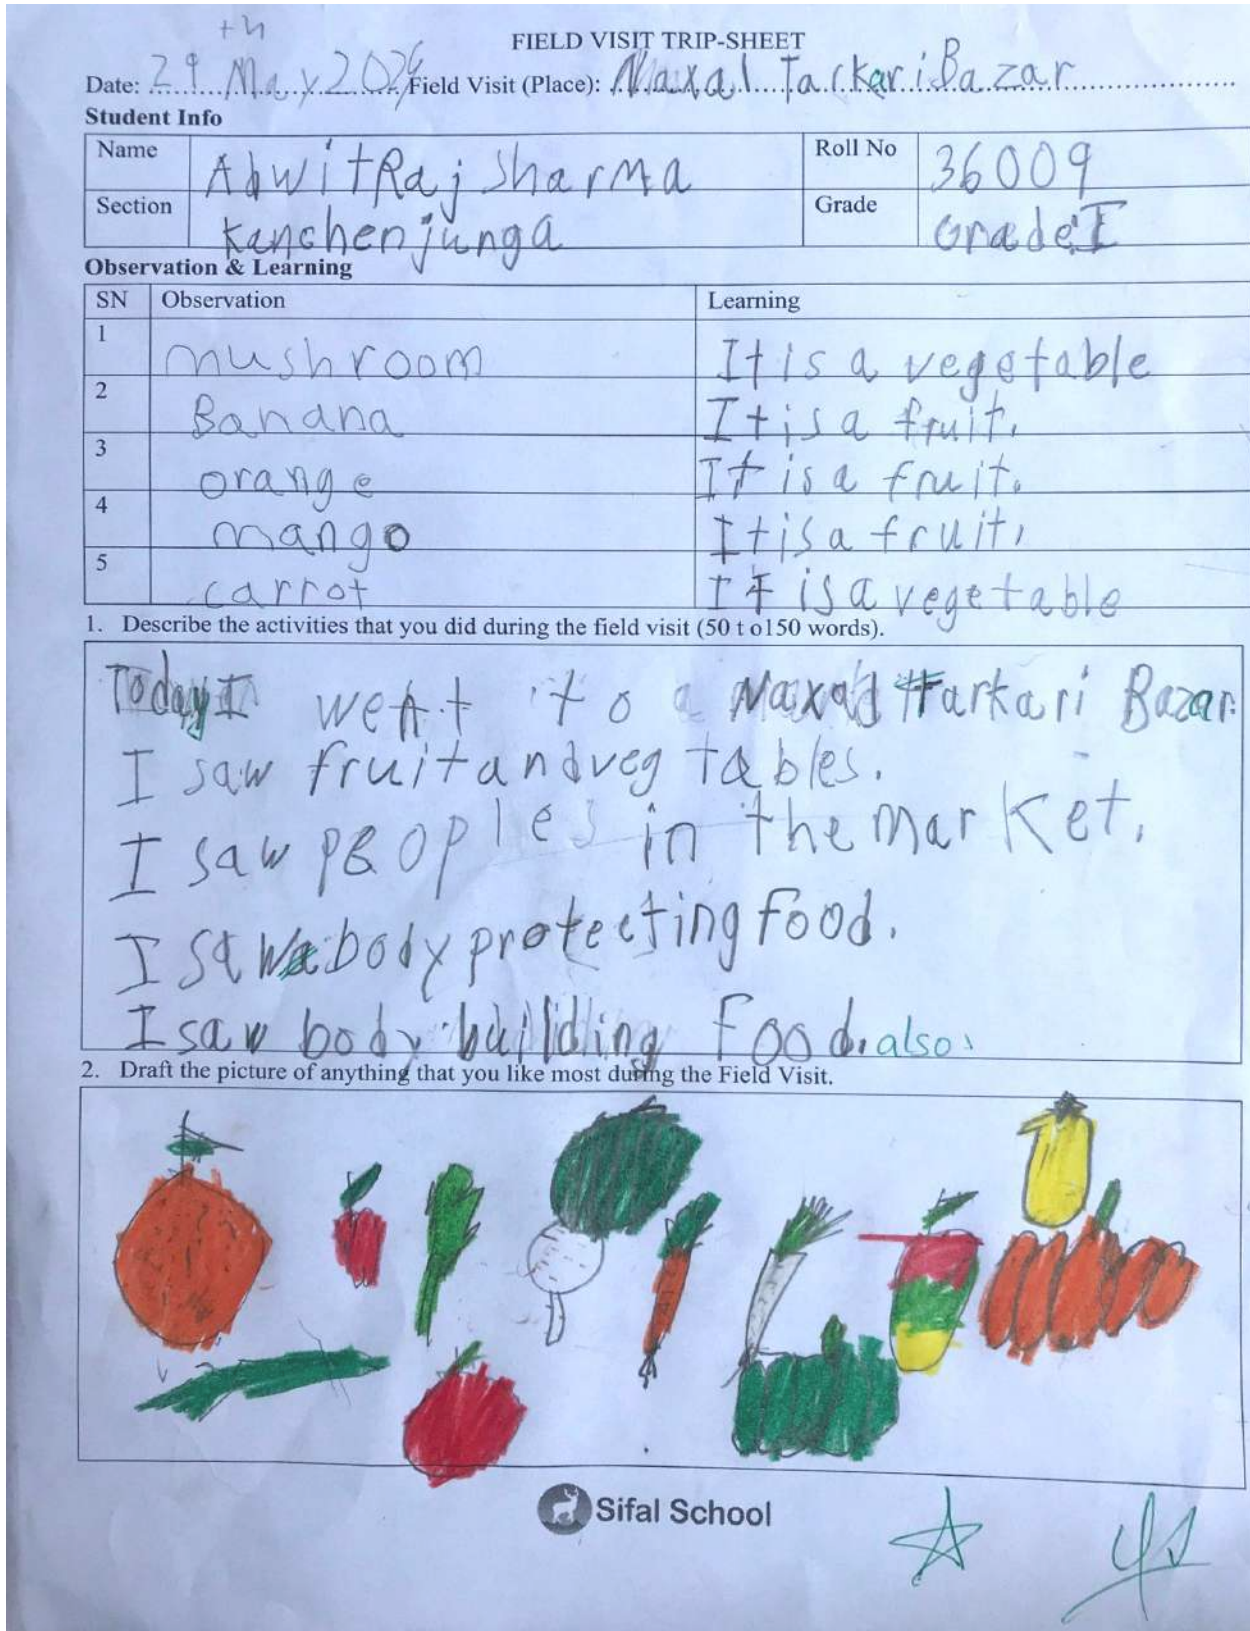 FIELD VISIT TRIP-SHEET
Date: 29th May 2024 Field Visit (Place): Naxal Tarkari Bazar
Student Info
Name Adwit Raj Sharma Roll No 36009
Section Kanchenjunga Grade Grade I
Observation & Learning
SN Observation Learning
1 mushroom It is a vegetable
2 Banana It is a fruit.
3 orange It is a fruit.
4 mango It is a fruit.
5 carrot It is a vegetable
1. Describe the activities that you did during the field visit (50 t o150 words).
Today I went to Naxal Tarkari Bazar.
I saw fruit and vegtables.
I saw peoples in the market.
I saw body protecting food.
I saw body building food. also.
2. Draft the picture of anything that you like most during the Field Visit.
Sifal School